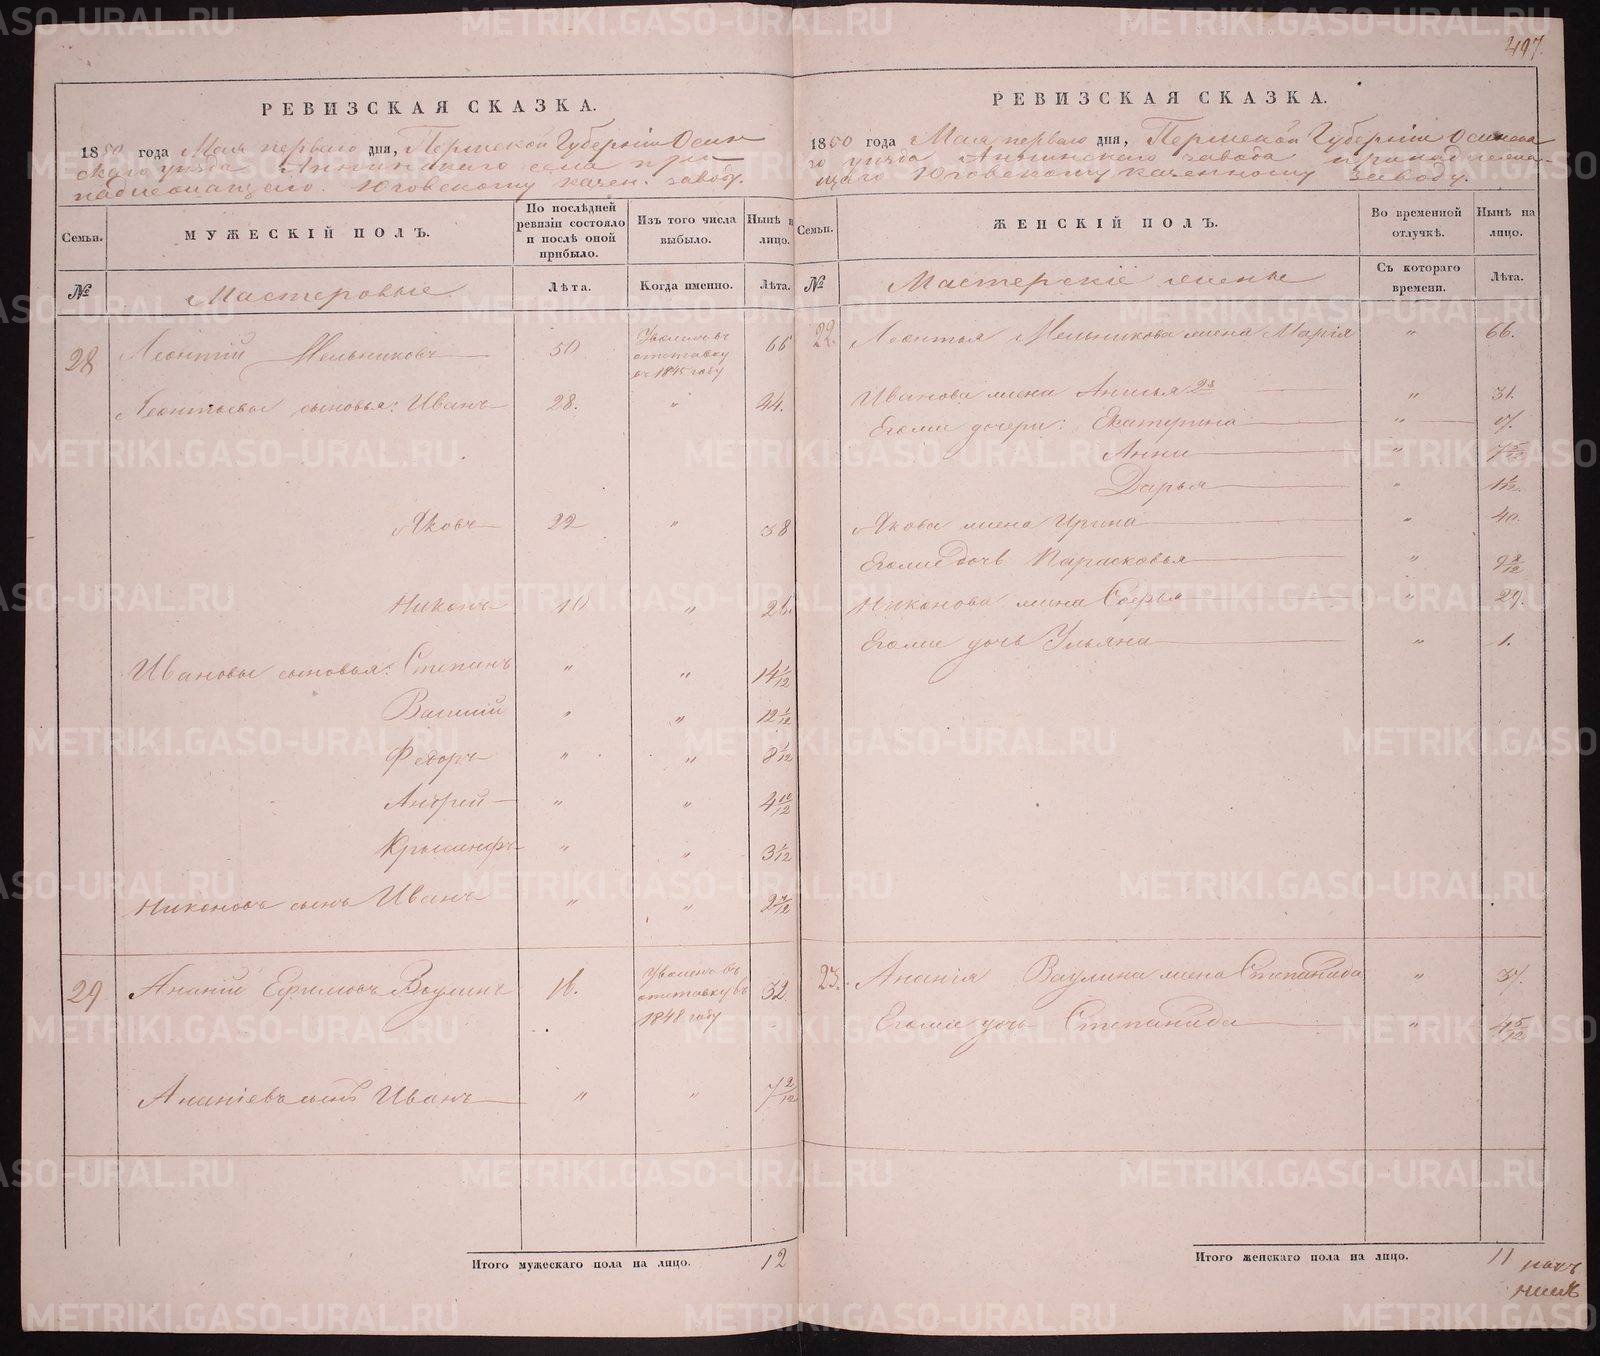 497.
РЕВИЗСКАЯ СКАЗКА.
1850 года Мая перваго дня, Пермской Губерніи Осин
скаго уезда Аннинскаго села при-
надлежащаго Юговскому казен. завод.
Семьи.
МУЖЕСКІЙ ПОЛЪ.
По послѣдней ревизіи состояло и послѣ оной прибыло.
Изъ того числа выбыло.
Нынѣ на лицо.
№
Мастеровые
Лѣта.
Когда именно.
Лѣта.
28 Леонтій Мельниковъ 50 Уволенъ въ отставку въ 1845 году 66
Леонтьевы сыновья: Иванъ 28. " 44.
Яковъ 22 " 38
Никонъ 10 " 26.
Ивановы сыновья: Степанъ " " 14 1/12
Василій " " 12 1/12
Федоръ " " 8 1/12
Андрей " " 4 10/12
Крысанфъ " " 3 1/12
Никоновъ сынъ Иванъ " " 2 7/12
29 Ананій Ефимовъ Ваулинъ 16. Уволенъ въ отставку въ 1848 году 32.
Ананіевъ сынъ Иванъ " " 7 2/12
Итого мужескаго пола на лицо. 12
РЕВИЗСКАЯ СКАЗКА.
1850 года Мая перваго дня, Пермской Губерніи Осинска
го уезда Аннинскаго завода принадлежа-
щаго Юговскому казенному заводу.
Семьи.
ЖЕНСКІЙ ПОЛЪ.
Во временной отлучкѣ.
Нынѣ на лицо.
№
Мастерскіе жены
Съ котораго времени.
Лѣта.
22. Леонтья Мельникова жена Марія " 66.
Иванова жена Анисья 2я " 31.
Егоже дочери: Екатерина "
Анна " 7 5/12
Дарья " 1 1/12.
Якова жена Ирина " 40.
Егоже дочь Парасковья " 9 8/12
Никонова жена Софья " 27.
Егоже дочь Ульяна " 1.
23. Ананія Ваулина жена Степанида " 37.
Егоже дочь Степанида " 4 5/12
Итого женскаго пола на лицо. 11
METRIKI.GASO-URAL.RU